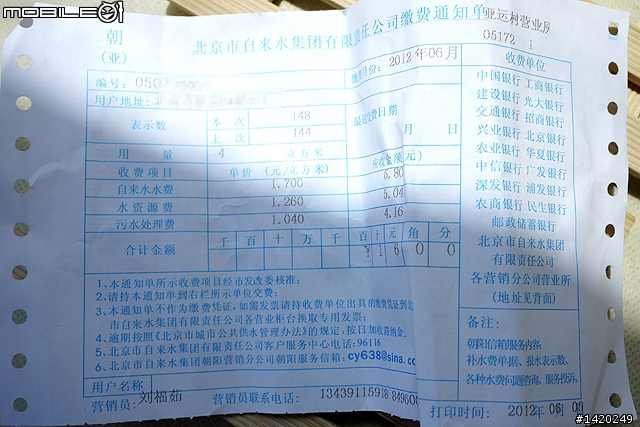 MOBILE01
朝
(亚)
北京市自来水集团有限责任公司缴费通知单
亚运村营业所
05172 1
编号:050
缴费月份:2012年06月
收费单位
用户地址:
表示数
本 次 148
上 次 144
最迟交费日期
月 日
用 量 4 立方米
收费项目 单价 (元/立方米) 应收金额(元)
自来水水费 1.700 6.80
水资源费 1.260 5.04
污水处理费 1.040 4.16
合计金额 千 百 十 万 千 百 十 元 角 分
¥ 1 6 0 0
中国银行 工商银行
建设银行 光大银行
交通银行 招商银行
兴业银行 北京银行
农业银行 华夏银行
中信银行 广发银行
深发银行 浦发银行
农商银行 民生银行
邮政储蓄银行
北京市自来水集团
有限责任公司
各营销分公司营业所
(地址见背面)
1、本通知单所示收费项目经市发改委核准;
2、请持本通知单到右栏所示单位交费;
3、本通知单不作为缴费凭证,如需发票请持收费单位出具的缴费凭证到北
市自来水集团有限责任公司各营业柜台换取专用发票;
4、逾期按照《北京市城市公共供水管理办法》的规定,按日加收滞纳金;
5、北京市自来水集团有限责任公司客户服务中心电话:96116
6、北京市自来水集团朝阳营销分公司朝阳服务信箱:cy638@sina.c
备注:
朝阳信箱服务内容:
补水费单据、报水表示数、
各种水费问题咨询、服务投诉。
用户名称
营销员:刘福茹
营销员联系电话:13439115918 849600
打印时间: 2012年 06月
#1420249